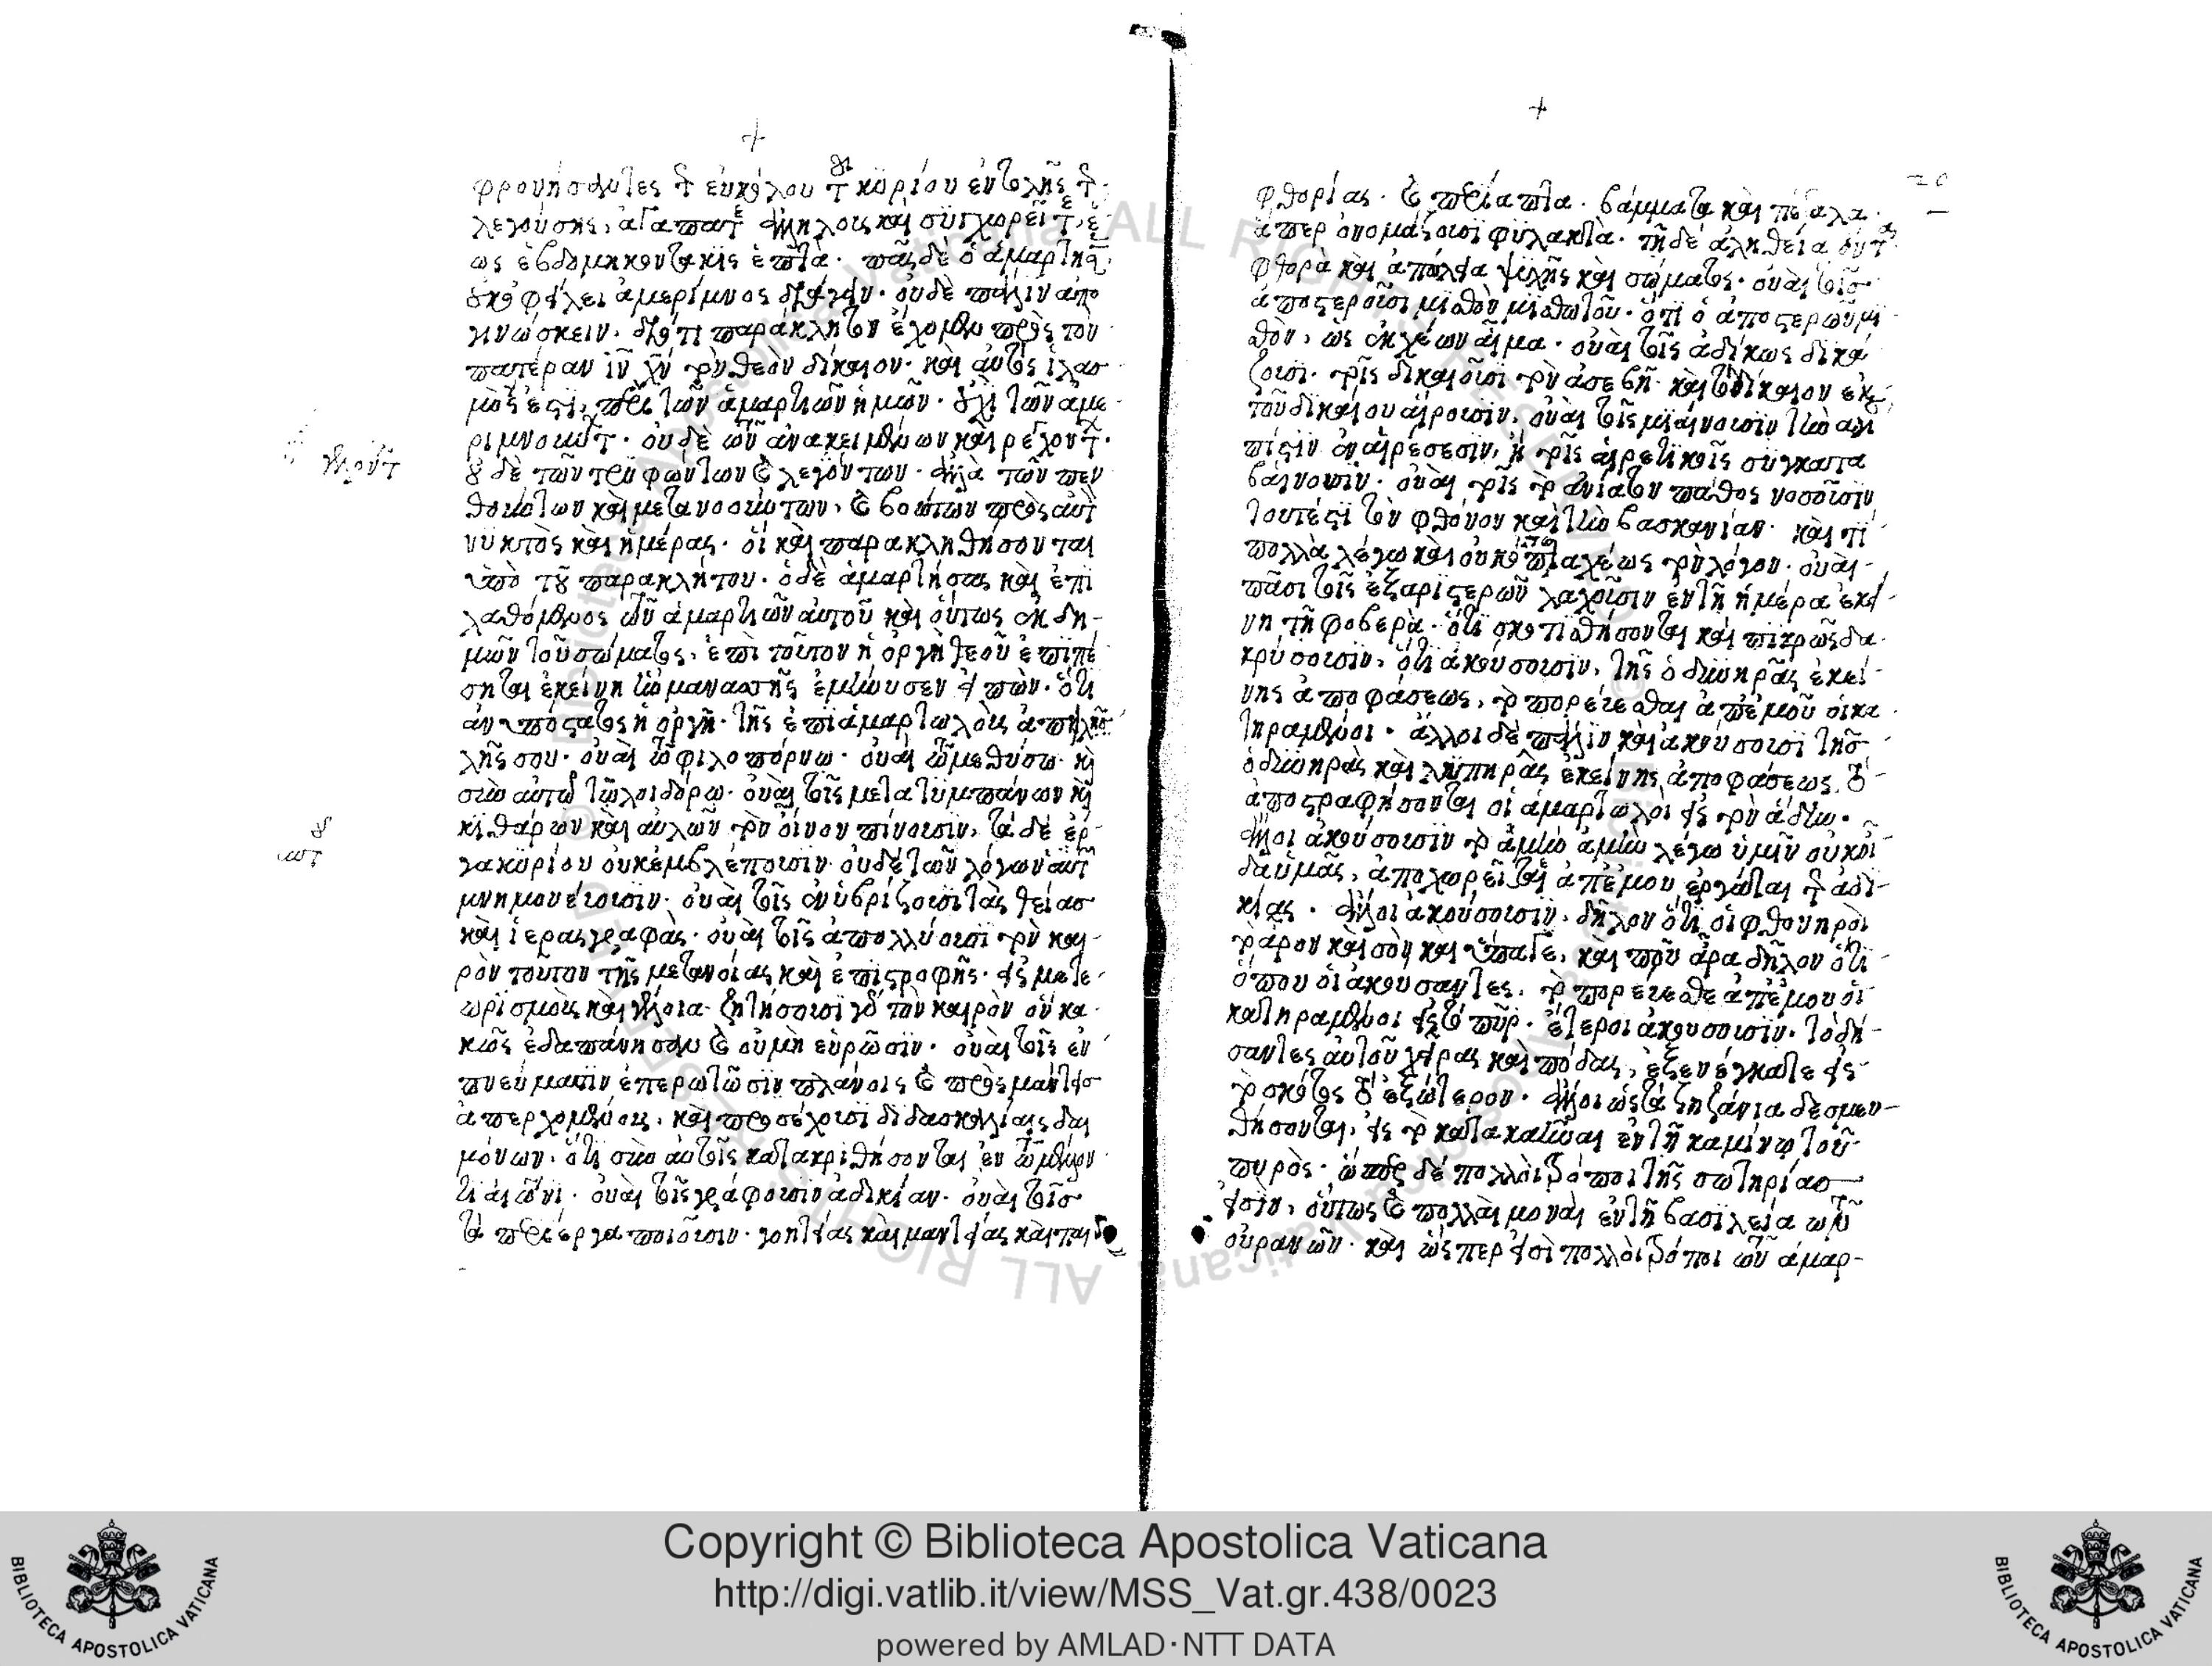 +
φρονήσαντες τῆς εὐκόλου τῆς κυρίου ἐντολῆς τῆς
λεγούσης, ἀγαπᾶτε ἀλλήλους καὶ συγχωρεῖτε, ἕ
ως ἑβδομηκοντάκις ἑπτά. πᾶς δὲ ὁ ἁμαρτήσας
οὐκ ὀφείλει ἀμερίμνως διάγειν. οὐδὲ πάλιν ἀπο
γινώσκειν. διότι παράκλητον ἔχομεν πρὸς τὸν
πατέραν ἰν χν τὸν θεὸν δίκαιον. καὶ αὐτὸς ἱλασ
μός ἐστι, περὶ τῶν ἁμαρτιῶν ἡμῶν. οὐχὶ τῶν ἀμε
ριμνούντων. οὐδὲ τῶν ἀνακειμένων καὶ ρεγχόντων.
οὐδὲ τῶν τρυφώντων καὶ λεγόντων. ἀλλὰ τῶν πεν
θούντων καὶ μετανοούντων, καὶ βοώντων πρὸς αὐτὸν
νυκτὸς καὶ ἡμέρας. οἳ καὶ παρακληθήσονται
ὑπὸ τοῦ παρακλήτου. ὁ δὲ ἁμαρτήσας καὶ ἐπι
λαθόμενος τῶν ἁμαρτιῶν αὐτοῦ καὶ οὕτως ἐκδη-
μῶν τοῦ σώματος, ἐπὶ τοῦτον ἡ ὀργὴ θεοῦ ἐπιπέ
σηται ἐκείνη ἣν μανασσῆς ἐμήνυσεν εἰπών. ὅτι
ἀνυπόστατος ἡ ὀργὴ τῆς ἐπὶ ἁμαρτωλοὺς ἀπει
λῆς σου. οὐαὶ τῷ φιλοπόρνῳ. οὐαὶ τῷ μεθύσῳ καὶ
σὺν αὐτῷ τῷ λοιδόρῳ. οὐαὶ τοῖς μετὰ τυμπάνων καὶ
κιθαρῶν καὶ αὐλῶν τὸν οἶνον πίνουσιν, τὰ δὲ ἔρ-
γα κυρίου οὐκ ἐμβλέπουσιν οὐδὲ τῶν λόγων αὐτοῦ
μνημονεύουσιν. οὐαὶ τοῖς ἐνυβρίζουσι τὰς θείας
καὶ ἱερὰς γραφάς. οὐαὶ τοῖς ἀπολλύουσι τὸν και-
ρὸν τοῦτον τῆς μετανοίας καὶ ἐπιστροφῆς. εἰς μετε-
ωρισμοὺς καὶ γέλοια. ζητήσουσι γὰρ τὸν καιρὸν ὃν κα-
κῶς ἐδαπάνησαν καὶ οὐ μὴ εὑρῶσιν. οὐαὶ τοῖς ἐν
πνεύμασιν ἐπερωτῶσιν πλάνοις καὶ πρὸς μάντεις
ἀπερχομένοις, καὶ προσέχουσι διδασκαλίαις δαι
μόνων. ὅτι σὺν αὐτοῖς κατακριθήσονται ἐν τῷ μέλλον
τι αἰῶνι. οὐαὶ τοῖς γράφουσιν ἀδικίαν. οὐαὶ τοῖς
τὰ περίεργα ποιοῦσιν. γοητείας καὶ μαντείας καὶ παιδο
+
φθορίας. καὶ περίαπτα. βάμματα καὶ πέταλα.
ἅπερ ὀνομάζουσι φυλακτά. τῇ δὲ ἀληθείᾳ ὄντα
φθορὰ καὶ ἀπώλεια ψυχῆς καὶ σώματος. οὐαὶ τοῖς
ἀποστεροῦσι μισθὸν μισθωτοῦ. ὅτι ὁ ἀποστερῶν μι
σθὸν, ὡς ἐκχέων αἷμα. οὐαὶ τοῖς ἀδίκως δικά
ζουσι. τοῖς δικαιοῦσι τὸν ἀσεβῆ. καὶ τὸ δίκαιον ἐκ
τοῦ δικαίου αἴρουσιν. οὐαὶ τοῖς μιαίνουσιν τὴν ἁγί
πίστιν ἐν αἱρέσεσιν, ἢ τοῖς αἱρετικοῖς συγκατα
βαίνουσιν. οὐαὶ τοῖς τὸ ἀνίατον πάθος νοσοῦσιν
τουτέστι τὸν φθόνον καὶ τὴν βασκανίαν. καὶ τί
πολλὰ λέγω καὶ οὐκ ἐπιταχέως τὸν λόγον. οὐαὶ
πᾶσι τοῖς ἐξ ἀριστερῶν λαχοῦσιν ἐν τῇ ἡμέρᾳ ἐκεί-
νῃ τῇ φοβερᾷ. ὅτι σκοτισθήσονται καὶ πικρῶς δα-
κρύσουσιν, ὅτι ἀκούσουσιν, τῆς ὀδυνηρᾶς ἐκεί-
νης ἀποφάσεως, τὸ πορεύεσθαι ἀπ' ἐμοῦ οἱ κα
τηραμένοι. ἄλλοι δὲ πάλιν καὶ ἀκούσουσι τῆς
ὀδυνηρᾶς καὶ λυπηρᾶς ἐκείνης ἀποφάσεως. τὸ
ἀποστραφήσονται οἱ ἁμαρτωλοὶ εἰς τὸν ᾅδην.
ἄλλοι ἀκούσουσιν τὸ ἀμὴν ἀμὴν λέγω ὑμῖν οὐκ οἶ-
δα ὑμᾶς, ἀποχωρεῖτε ἀπ' ἐμοῦ ἐργάται τῆς ἀδι-
κίας. ἄλλοι ἀκούσουσιν. δῆλον ὅτι οἱ φθονηροὶ
τὸ ἆρον καὶ σὸν καὶ ὕπαγε, καὶ ποῦ ἆρα δῆλον ὅτι
ὅπου οἱ ἀκούσαντες. τὸ πορεύεσθε ἀπ' ἐμοῦ οἱ
κατηραμένοι εἰς τὸ πῦρ. ἕτεροι ἀκούσουσιν. τὸ δή-
σαντες αὐτοῦ χεῖρας καὶ πόδας, ἐξενέγκατε εἰς
τὸ σκότος τὸ ἐξώτερον. ἄλλοι ὡς τὰ ζηζάνια δεσμευ-
θήσονται, εἰς τὸ κατακαῦσαι ἐν τῇ καμίνῳ τοῦ
πυρός. ὥσπερ δὲ πολλοὶ τρόποι τῆς σωτηρίας
εἰσίν, οὕτως καὶ πολλαὶ μοναὶ ἐν τῇ βασιλείᾳ τῶν
οὐρανῶν. καὶ ὥσπερ εἰσὶ πολλοὶ τρόποι τῶν ἁμαρ-
Copyright © Biblioteca Apostolica Vaticana
http://digi.vatlib.it/view/MSS_Vat.gr.438/0023
powered by AMLAD·NTT DATA
BIBLIOTECA APOSTOLICA VATICANA
BIBLIOTECA APOSTOLICA VATICANA